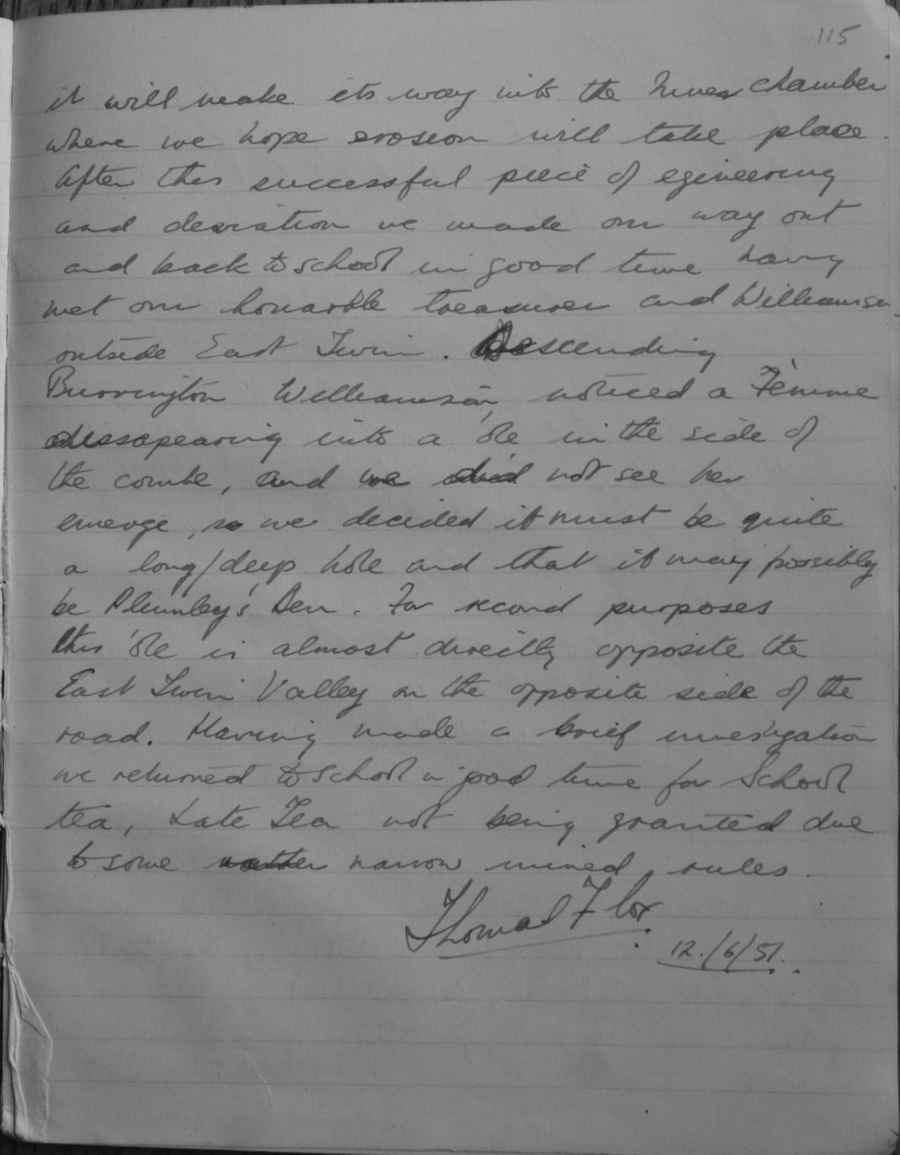 115
it will make its way into the Inner chamber
where we hope erosion will take place.
After this successful piece of egineering
and deviation we made our way out
and back to school in good time having
met our honarble treasurer and Williamson
outside East Twin. Descending
Burrington Williamson noticed a Femme
dissapearing into a 'ole in the side of
the combe, and we did not see her
emerge, so we decided it must be quite
a long/deep hole and that it may possibly
be Plumley's Den. For record purposes
this 'ole is almost directly opposite the
East Twin Valley on the opposite side of the
road. Having made a brief investigation
we returned to school in good time for School
tea, Late Tea not being granted due
to some rather narrow mined rules.
Thomas F
12./6/51.